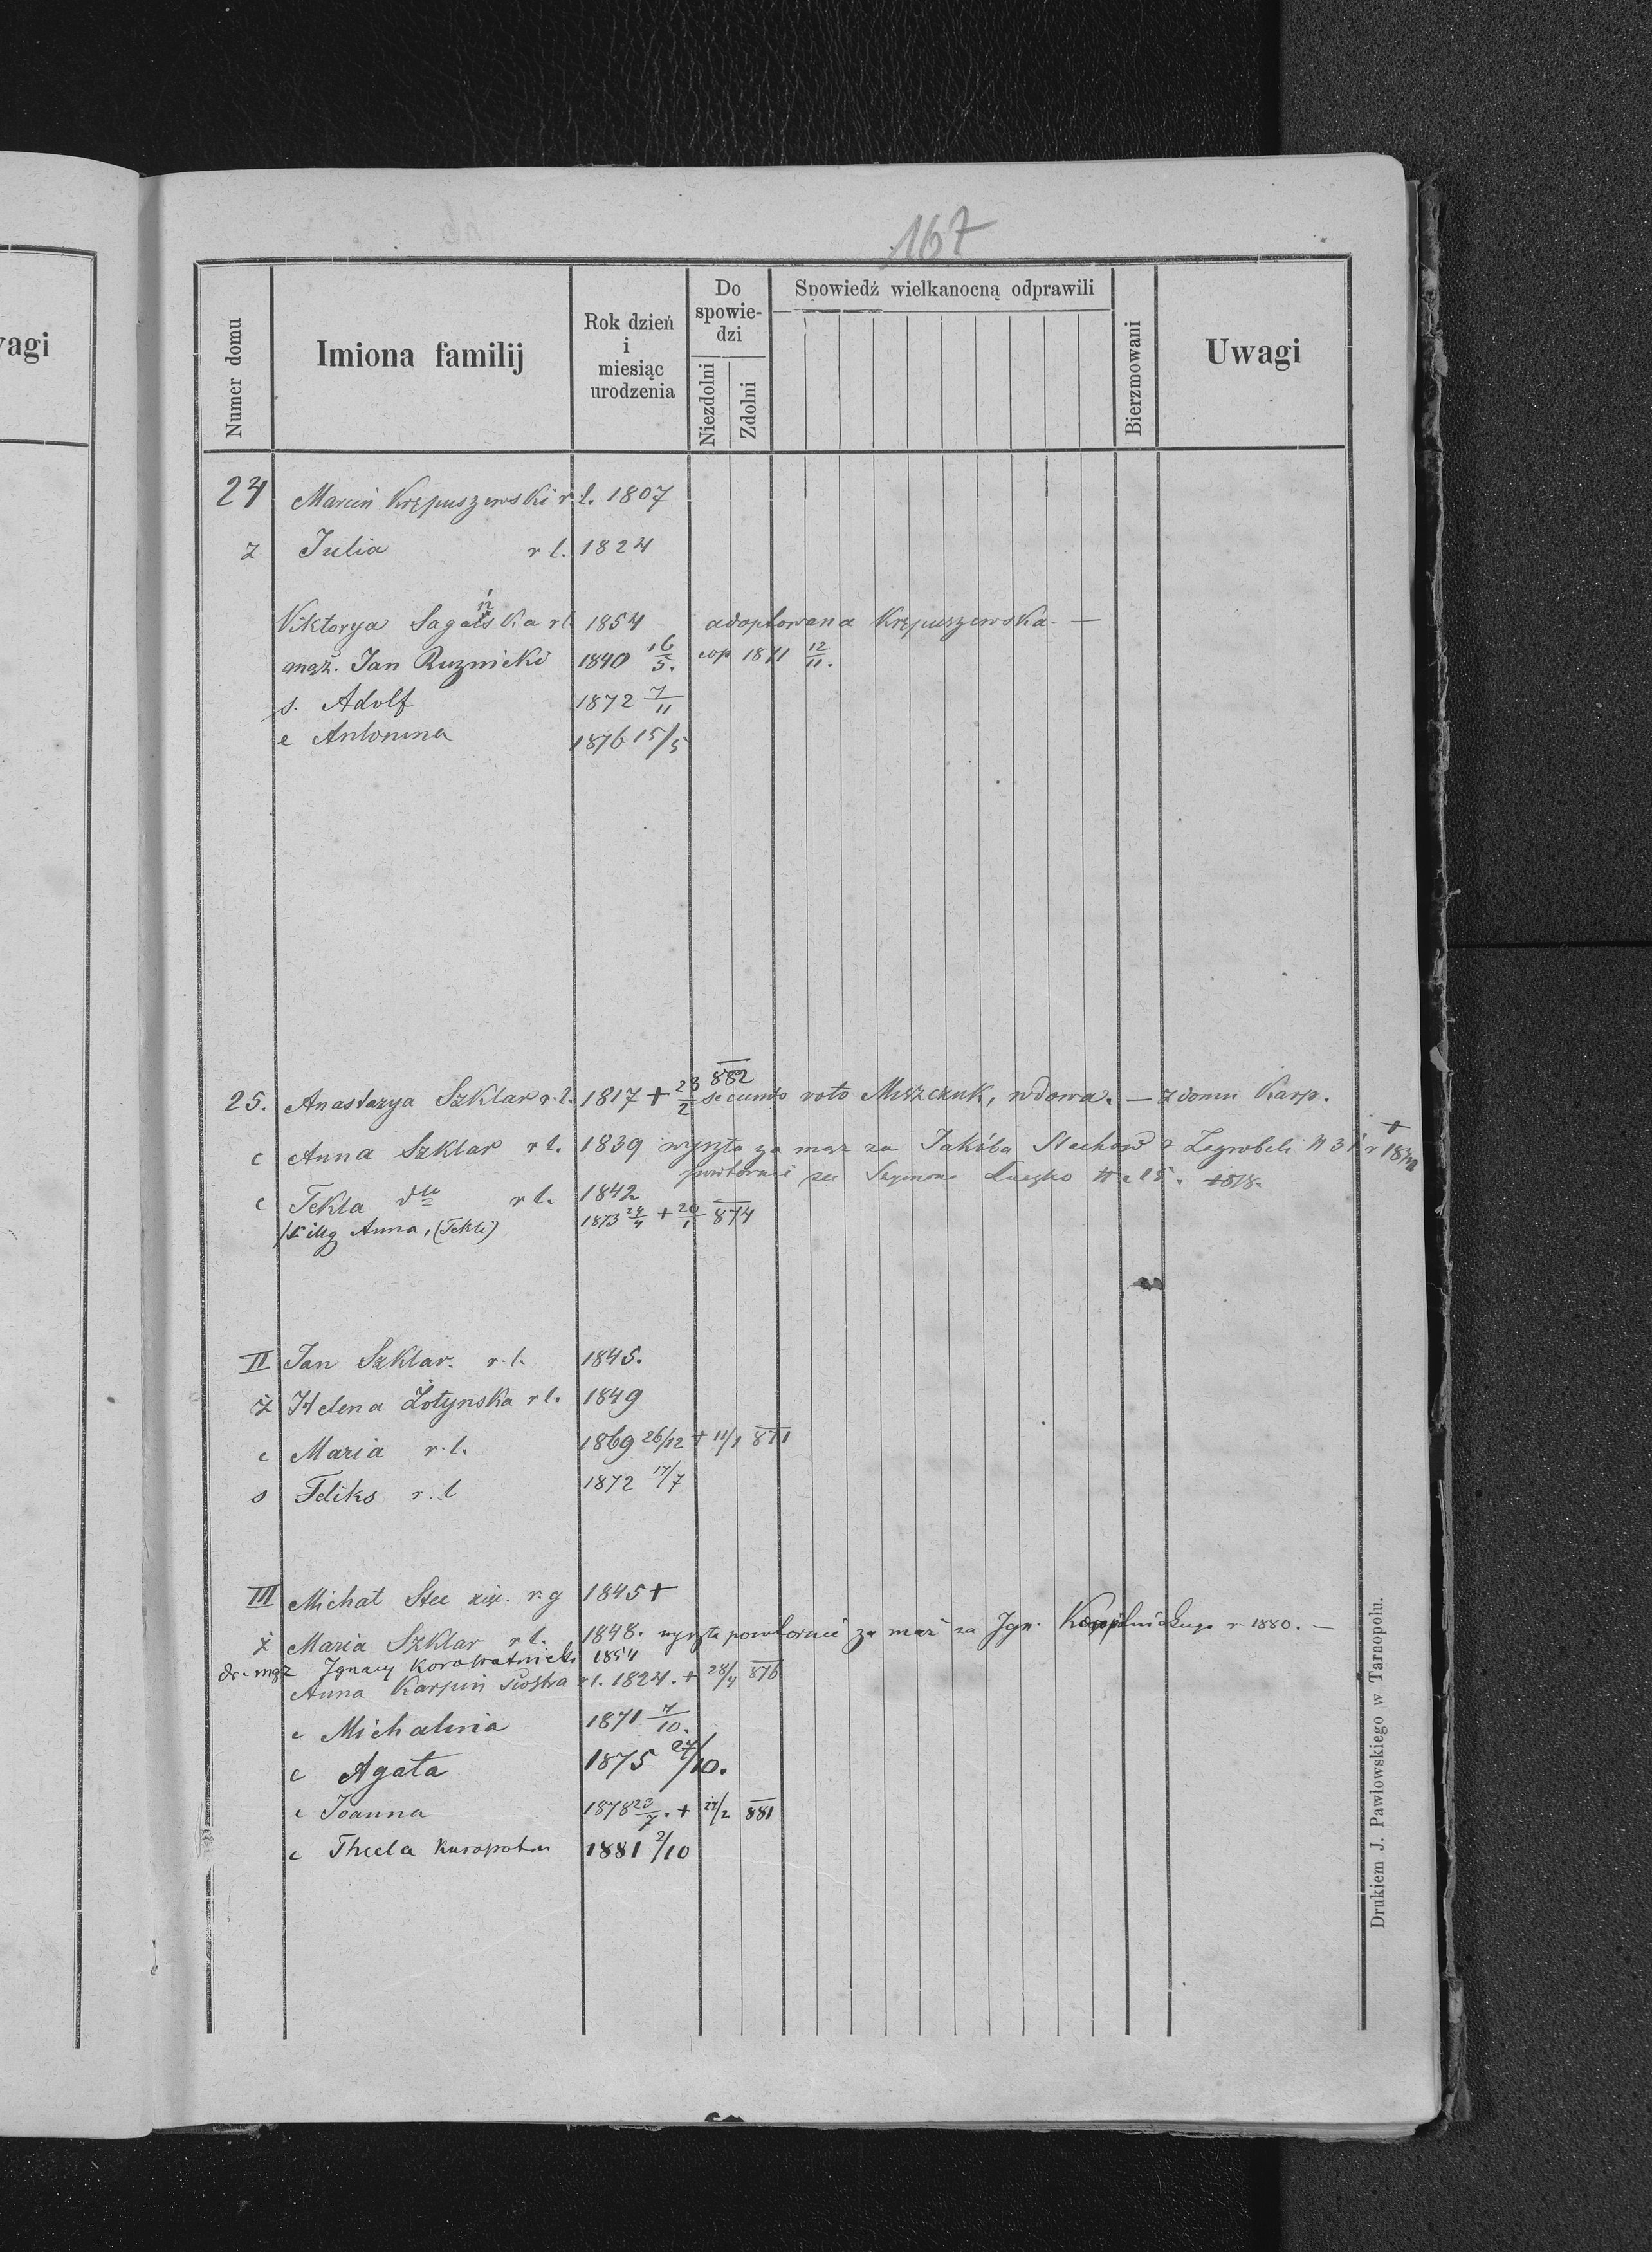 167
vagi
Numer domu
Imiona familij
Rok dzień i miesiąc urodzenia
Do spowie-dzi
Niezdolni
Zdolni
Spowiedź wielkanocną odprawili
Bierzmowani
Uwagi
24 Marcin Krępuszewski r. l. 1807
ż Julia r l. 1824
Viktorya Sagańska rl 1854 adoptowana Krępuszewska. —
mąż. Jan Ruznicki 1840 16/5. cop 1871 12/11.
s. Adolf 1872 7/11
c Antonina 1876 15/5
25. Anastazya Szklar r. l. 1817 + 23/2 882 secundo voto Miszczuk, wdowa. — z domu Karp.
c Anna Szklar r l. 1839 wyszła za mąż za Jakóba Stechow z Zagrobeli N 31 r 1872 +
powtórnie za Szymona Łuczko N. 15. 1878.
c Tekla dto r l. 1842
c illg Anna, (Tekli) 1873 24/4 + 20/1 874
II Jan Szklar. r. l. 1845.
ż Helena Żołynska r l. 1849
c Maria r. l. 1869 26/12 + 11/1 871
s Feliks r. l 1872 17/7
III Michał Stec r. g 1845 +
ż Maria Szklar r l. 1848. wyszła powtornie za maż za Ign. r. 1880. —
dr. mąż Ignacy Korowatnicki 1854
Anna Karpin siostra r l. 1824. + 28/4 876
c Michalina 1871 7/10.
c Agata 1875 27/10.
c Joanna 1878 23/7. + 22/2 881
c Thecla 1881 2/10
Drukiem J. Pawlowskiego w Tarnopolu.